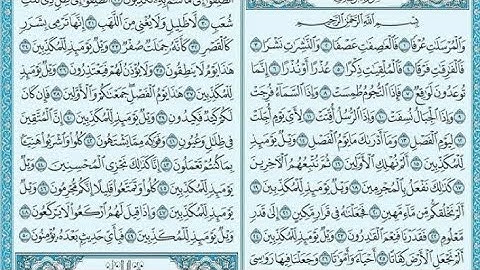 بِسْمِ اللَّهِ الرَّحْمَٰنِ الرَّحِيمِ
وَالْمُرْسَلَٰتِ عُرْفًا ١ فَالْعَٰصِفَٰتِ عَصْفًا ٢ وَالنَّٰشِرَٰتِ نَشْرًا ٣
فَالْفَٰرِقَٰتِ فَرْقًا ٤ فَالْمُلْقِيَٰتِ ذِكْرًا ٥ عُذْرًا أَوْ نُذْرًا ٦ إِنَّمَا
تُوعَدُونَ لَوَٰقِعٌ ٧ فَإِذَا النُّجُومُ طُمِسَتْ ٨ وَإِذَا السَّمَاءُ فُرِجَتْ ٩
وَإِذَا الْجِبَالُ نُسِفَتْ ١٠ وَإِذَا الرُّسُلُ أُقِّتَتْ ١١ لِأَيِّ يَوْمٍ أُجِّلَتْ ١٢
لِيَوْمِ الْفَصْلِ ١٣ وَمَا أَدْرَىٰكَ مَا يَوْمُ الْفَصْلِ ١٤ وَيْلٌ يَوْمَئِذٍ
لِّلْمُكَذِّبِينَ ١٥ أَلَمْ نُهْلِكِ الْأَوَّلِينَ ١٦ ثُمَّ نُتْبِعُهُمُ الْءَاخِرِينَ
١٧ كَذَٰلِكَ نَفْعَلُ بِالْمُجْرِمِينَ ١٨ وَيْلٌ يَوْمَئِذٍ لِّلْمُكَذِّبِينَ ١٩
أَلَمْ نَخْلُقكُّم مِّن مَّاءٍ مَّهِينٍ ٢٠ فَجَعَلْنَٰهُ فِي قَرَارٍ مَّكِينٍ ٢١ إِلَىٰ قَدَرٍ
مَّعْلُومٍ ٢٢ فَقَدَرْنَا فَنِعْمَ الْقَٰدِرُونَ ٢٣ وَيْلٌ يَوْمَئِذٍ لِّلْمُكَذِّبِينَ ٢٤
أَلَمْ نَجْعَلِ الْأَرْضَ كِفَاتًا ٢٥ أَحْيَاءً وَأَمْوَٰتًا ٢٦ وَجَعَلْنَا فِيهَا رَوَٰسِيَ
شُعَبٍ ٣٠ لَّا ظَلِيلٍ وَلَا يُغْنِي مِنَ اللَّهَبِ ٣١ إِنَّهَا تَرْمِي بِشَرَرٍ
كَالْقَصْرِ ٣٢ كَأَنَّهُ جِمَٰلَتٌ صُفْرٌ ٣٣ وَيْلٌ يَوْمَئِذٍ لِّلْمُكَذِّبِينَ ٣٤
هَٰذَا يَوْمُ لَا يَنطِقُونَ ٣٥ وَلَا يُؤْذَنُ لَهُمْ فَيَعْتَذِرُونَ ٣٦ وَيْلٌ يَوْمَئِذٍ
لِّلْمُكَذِّبِينَ ٣٧ هَٰذَا يَوْمُ الْفَصْلِ جَمَعْنَٰكُمْ وَالْأَوَّلِينَ ٣٨ فَإِن كَانَ
لَكُمْ كَيْدٌ فَكِيدُونِ ٣٩ وَيْلٌ يَوْمَئِذٍ لِّلْمُكَذِّبِينَ ٤٠ إِنَّ الْمُتَّقِينَ
فِي ظِلَٰلٍ وَعُيُونٍ ٤١ وَفَوَٰكِهَ مِمَّا يَشْتَهُونَ ٤٢ كُلُوا وَاشْرَبُوا هَنِيئًا
بِمَا كُنتُمْ تَعْمَلُونَ ٤٣ إِنَّا كَذَٰلِكَ نَجْزِي الْمُحْسِنِينَ ٤٤ وَيْلٌ
يَوْمَئِذٍ لِّلْمُكَذِّبِينَ ٤٥ كُلُوا وَتَمَتَّعُوا قَلِيلًا إِنَّكُم مُّجْرِمُونَ ٤٦ وَيْلٌ
يَوْمَئِذٍ لِّلْمُكَذِّبِينَ ٤٧ وَإِذَا قِيلَ لَهُمُ ارْكَعُوا لَا يَرْكَعُونَ ٤٨
وَيْلٌ يَوْمَئِذٍ لِّلْمُكَذِّبِينَ ٤٩ فَبِأَيِّ حَدِيثٍ بَعْدَهُ يُؤْمِنُونَ ٥٠